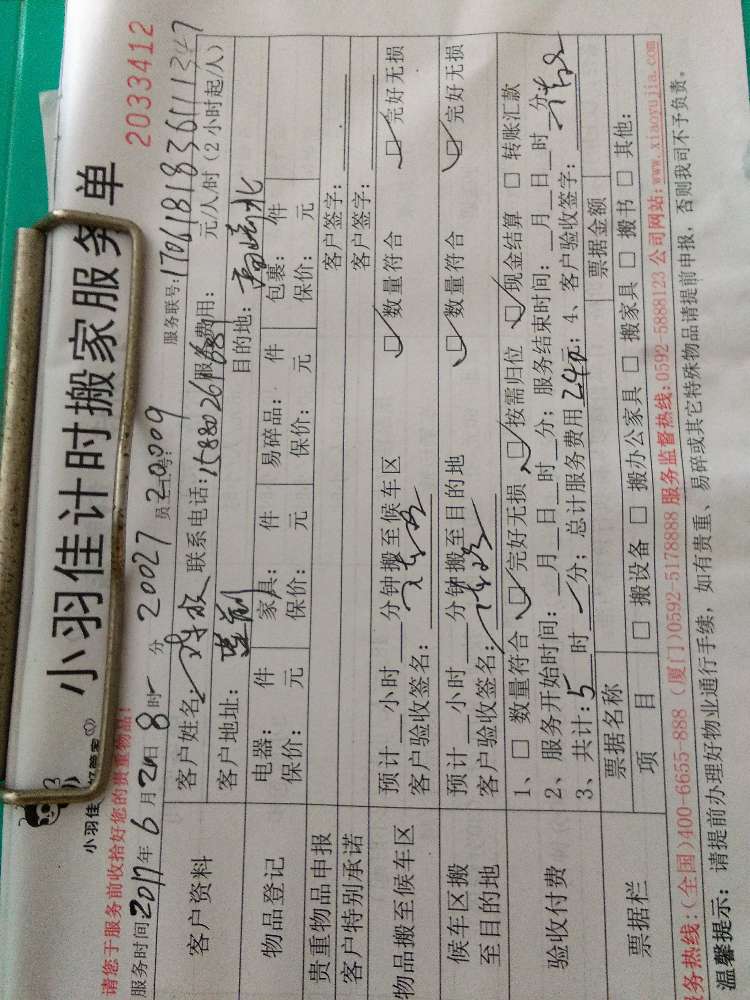 小羽佳计时搬家服务单
小羽佳
2033412
请您于服务前收拾好您的贵重物品!
服务联号:1706181836111347
服务时间2017年6月2日8时 分 20027 20009
客户资料
客户姓名: 联系电话: 服务费用: 元/人/时(2小时起/人)
客户地址: 目的地:高崎北
物品登记
电器: 件 家具: 件 易碎品: 件 包裹: 件
保价: 元 保价: 元 保价: 元 保价: 元
贵重物品申报 客户签字:
客户特别承诺 客户签字:
物品搬至候车区
预计 小时 分钟搬至候车区 ☑数量符合 ☑完好无损
客户验收签名:
候车区搬至目的地
预计 小时 分钟搬至目的地 ☑数量符合 ☑完好无损
客户验收签名:
验收付费
1、□数量符合 ☑完好无损 ☑按需归位 ☑现金结算 □转账汇款
2、服务开始时间: 月 日 时 分;服务结束时间: 月 日 时 分
3、共计:5时 分;总计服务费用 4、客户验收签字:
票据栏
票据名称 票据金额
项目 □搬设备 □搬办公家具 □搬家具 □搬书 □其他:
服务热线:(全国)400-6655-888 (厦门)0592-5178888 服务监督热线:0592-5888123 公司网站:www.xiaoyujia.com
温馨提示:请提前办理好物业通行手续,如有贵重、易碎或其它特殊物品请提前申报,否则我司不予负责。